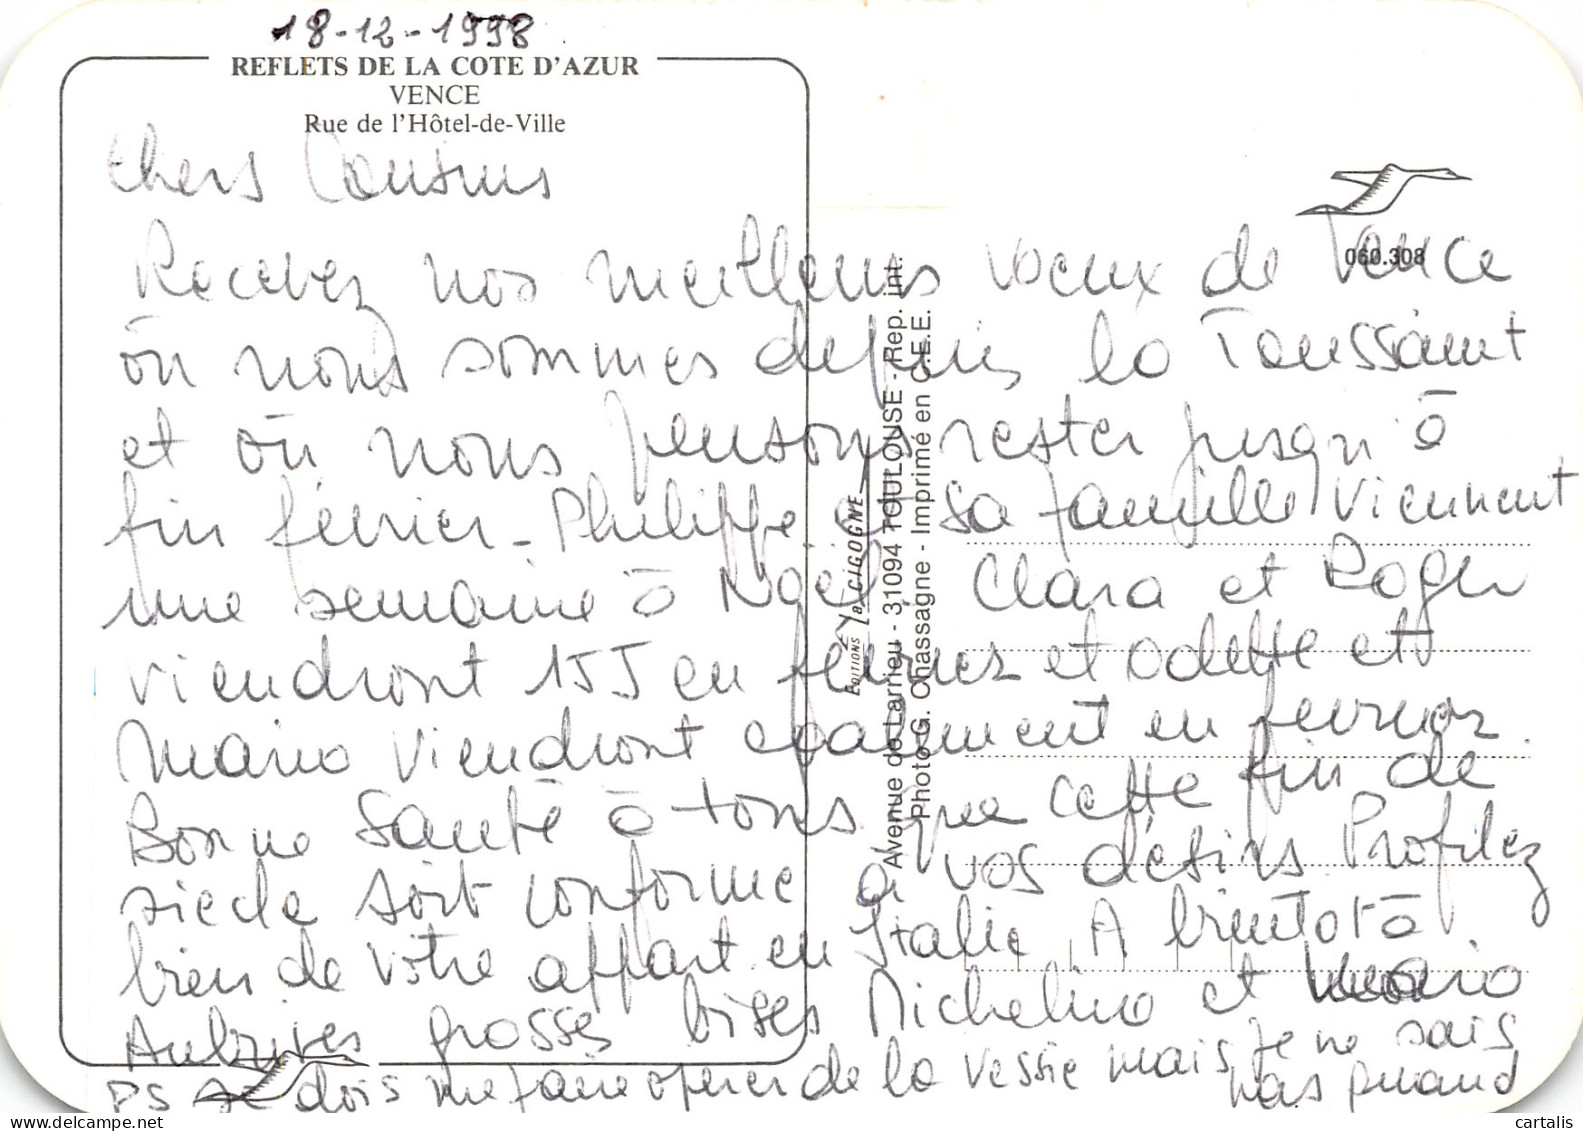 18-12-1998
REFLETS DE LA COTE D'AZUR
VENCE
Rue de l'Hôtel-de-Ville
Chers Cousins
060.308
Recevez nos meilleurs voeux de Vence
où nous sommes depuis la Toussaint
et où nous pensons rester jusqu'à
fin février - Philippe et sa famille viennent
une semaine à Noël. Clara et Roger
viendront 15 J en février et Odette et
Mario viendront également en février.
Bonne Santé à tous que cette fin de
siècle soit conforme à vos désirs. Profitez
bien de votre appart. en Italie. A bientôt à
Aubrives grosses bises Michelino et Mario
PS Je dois me faire opérer de la vessie mais je ne sais
pas quand
EDITIONS la CIGOGNE
Avenue de Larrieu - 31094 TOULOUSE - Rep. int.
Photo G. Chassagne - Imprimé en C.E.E.
delcampe.net
cartalis